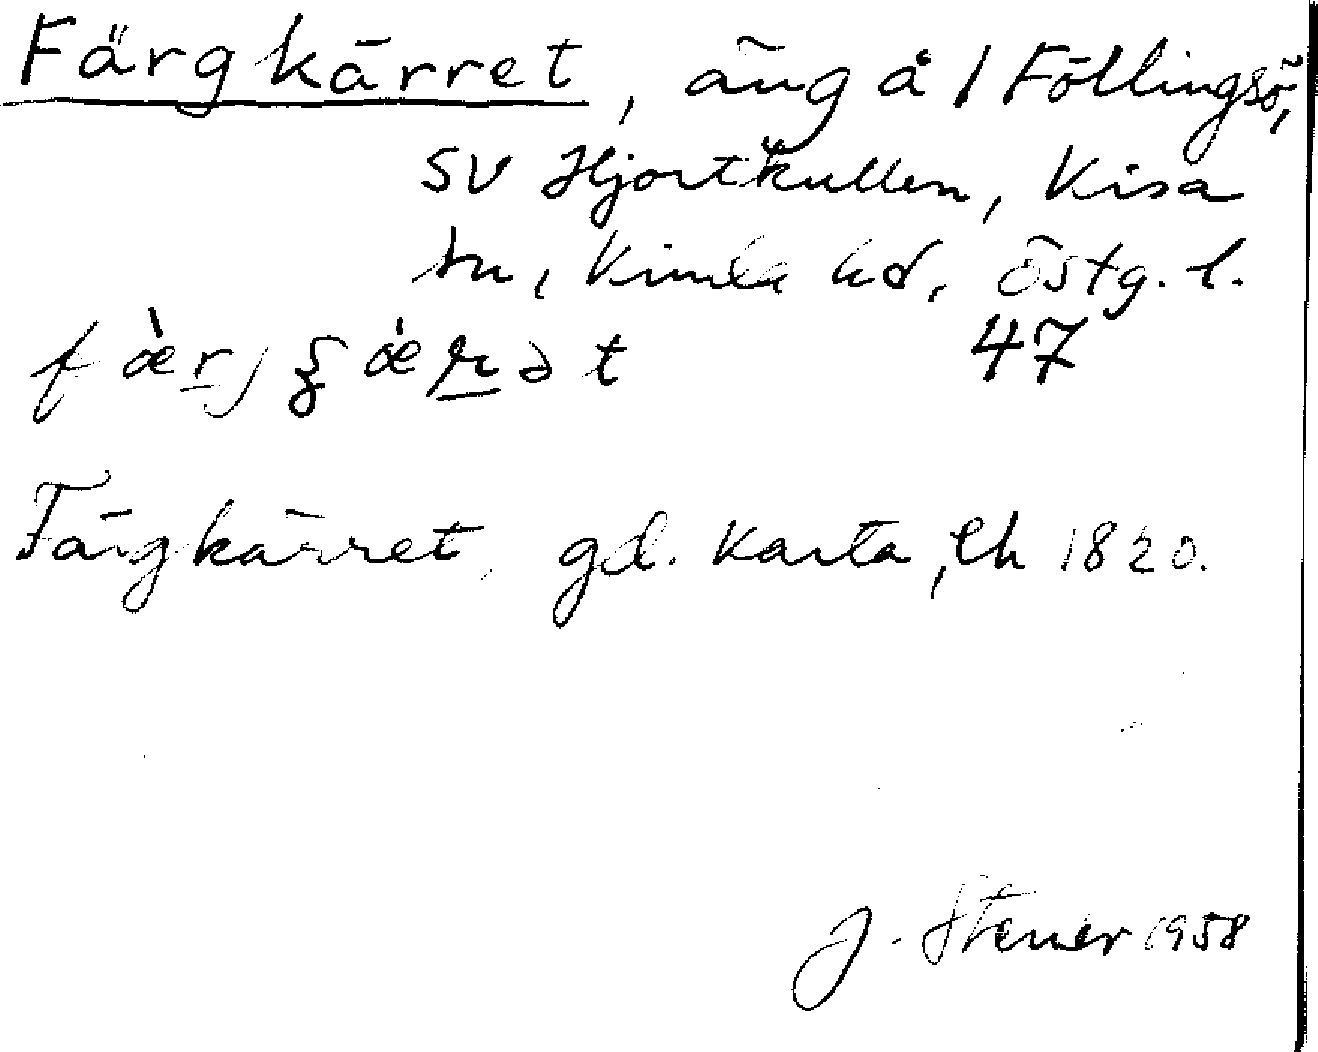 Färgkärret, äng å 1 Föllingsö,
SV Hjortkullen, Kisa
sn, Kinda hd, Östg. l.
47
Färgkärret, gd. karta, lh 1820.
J. Stener 1958